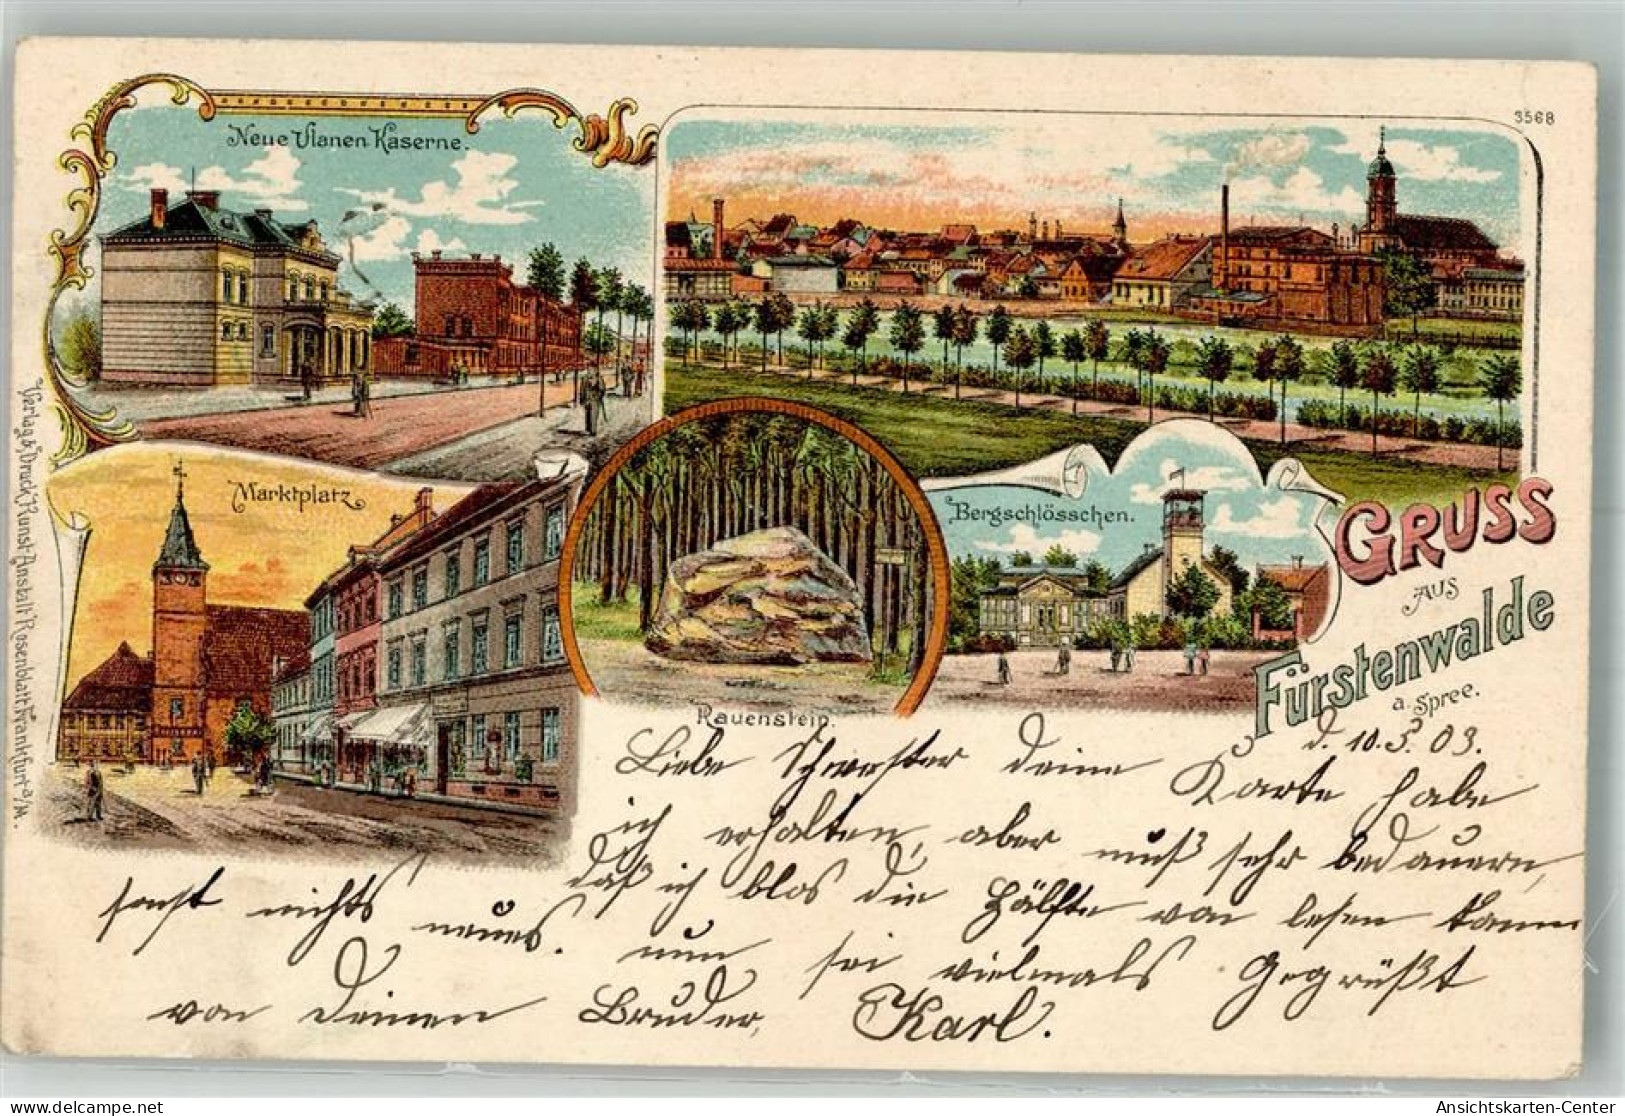 Neue Ulanen Kaserne.
3568
Marktplatz
Rauenstein.
Bergschlösschen.
GRUSS
AUS
Fürstenwalde
a. Spree.
Verlag & Druck Kunst-Anstalt Rosenblatt, Frankfurt a/M.
d. 10.3.03.
Liebe Schwester deine Karte habe
ich erhalten, aber muß sehr bedauern,
daß ich blos die Hälfte von lesen kann
sonst nichts neues. nun sei vielmals Gegrüßt
von Deinen Bruder, Karl.
Ansichtskarten-Center